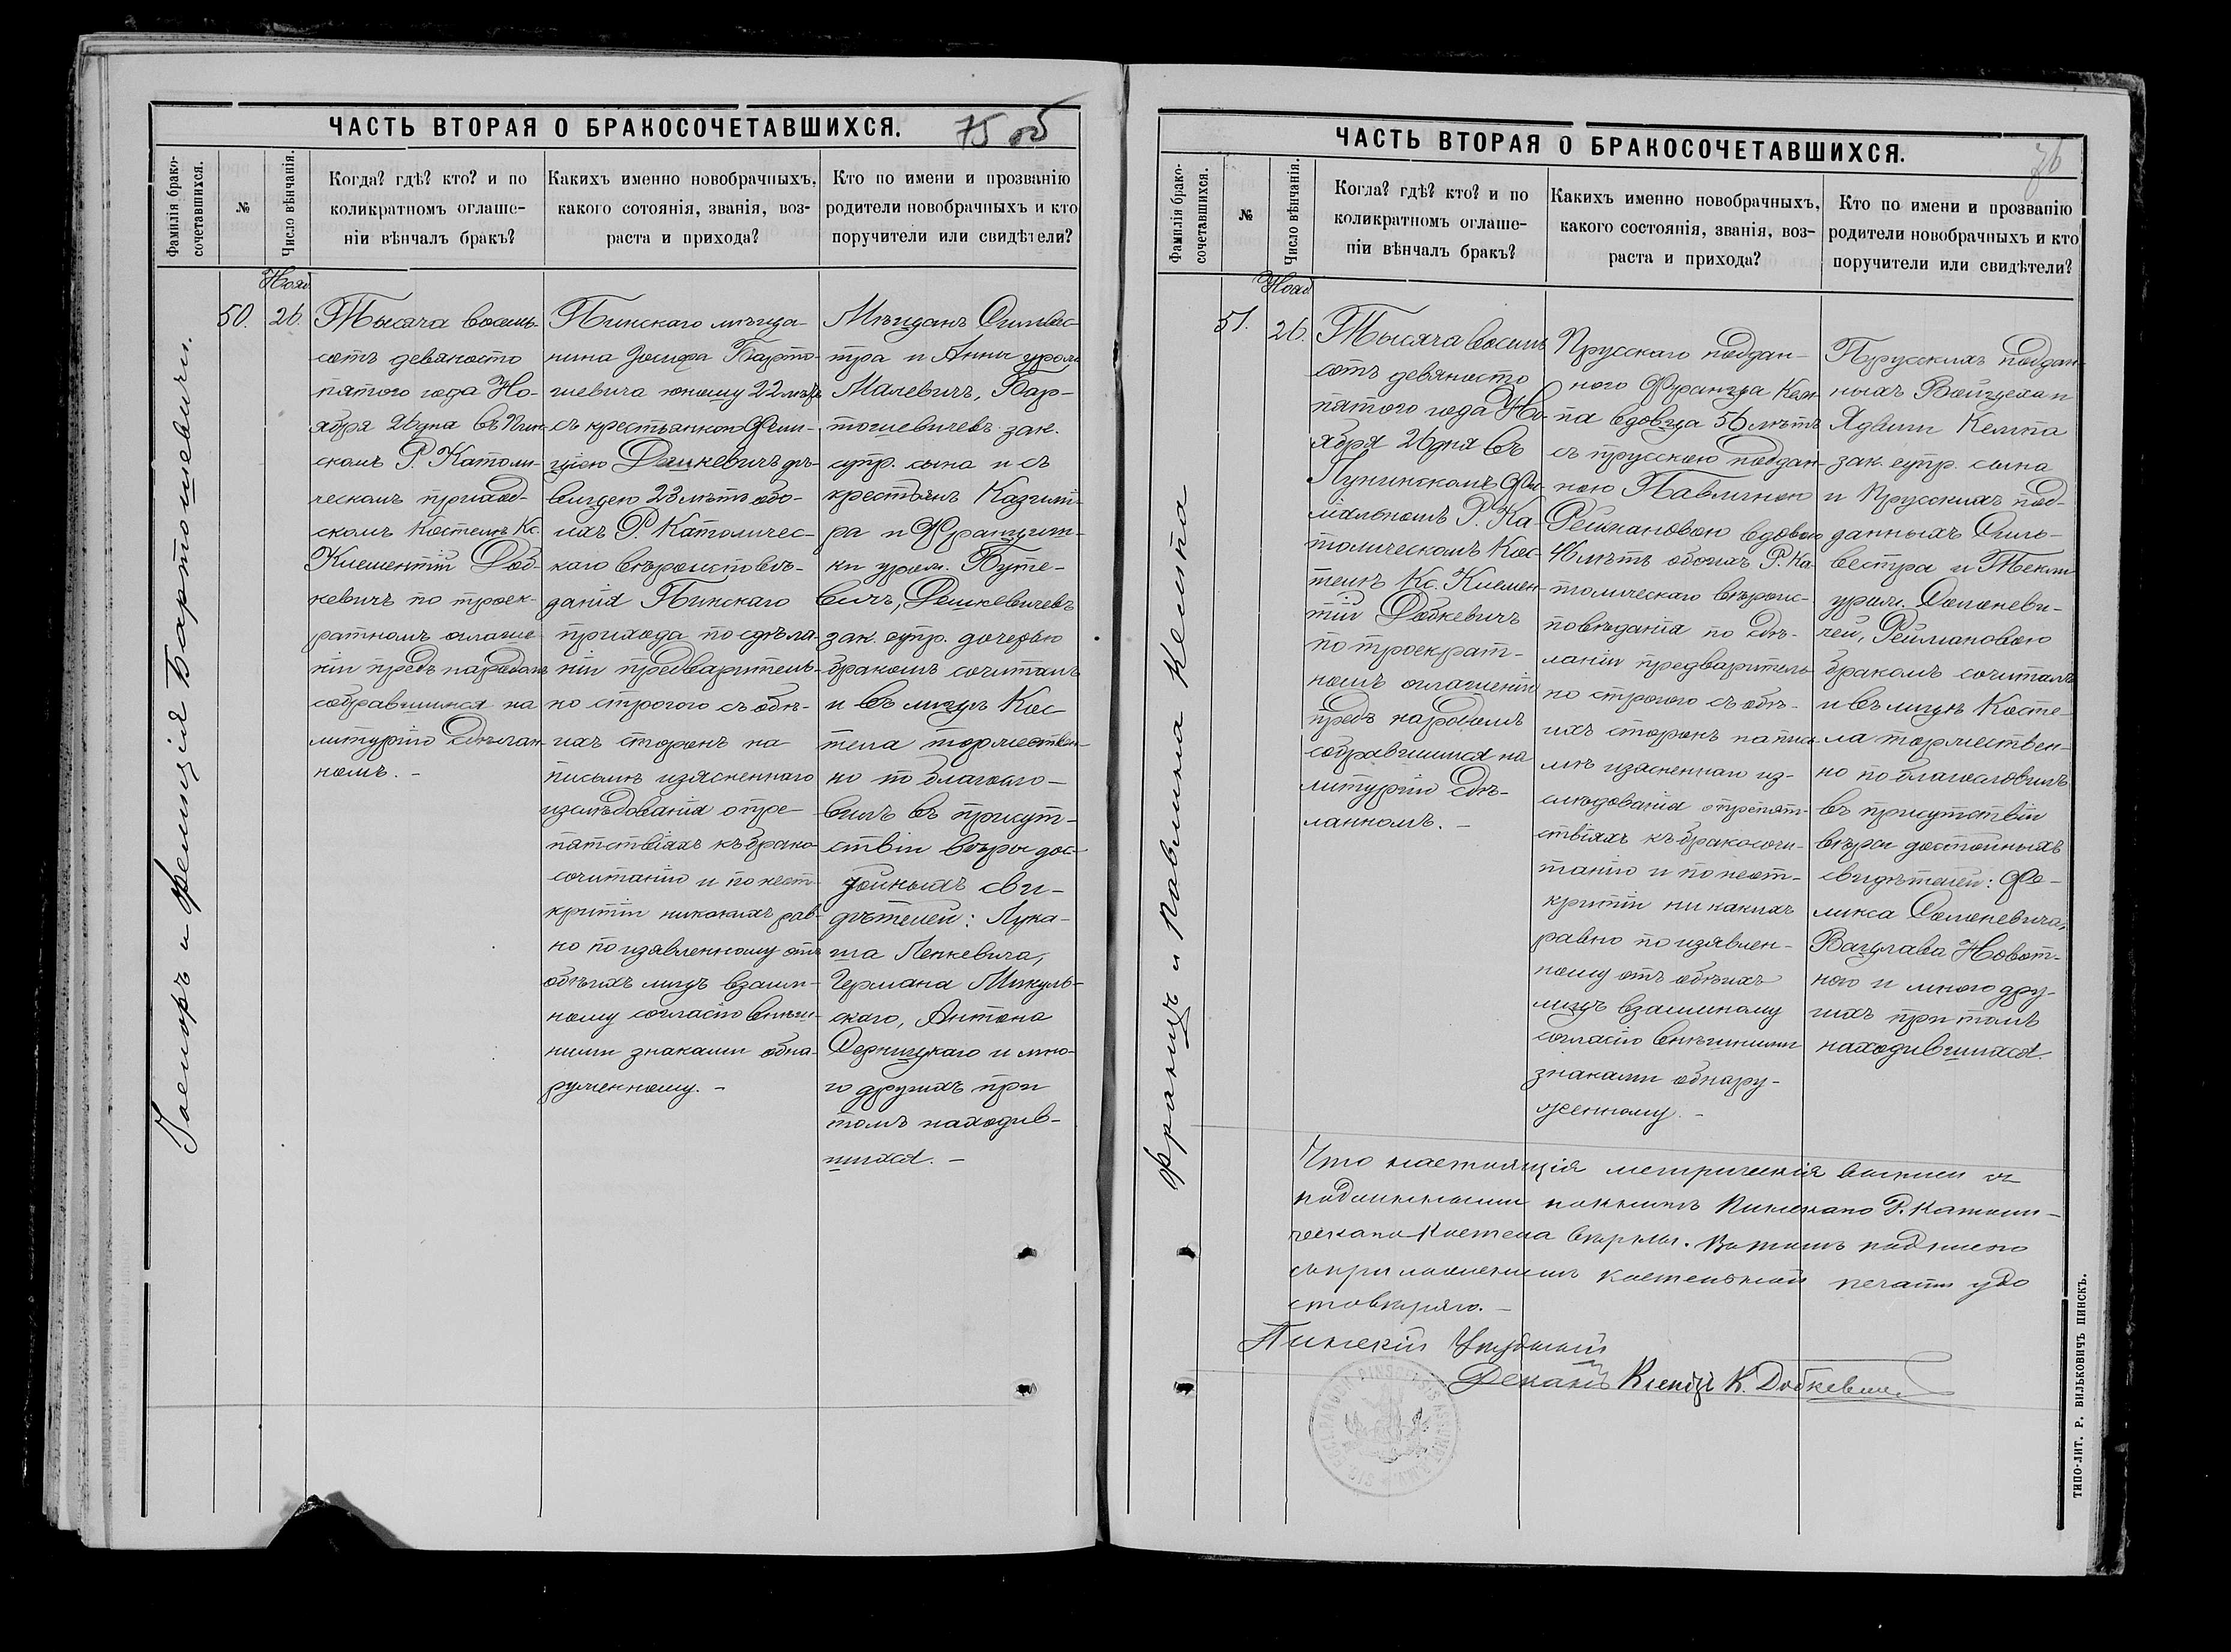 ЧАСТЬ ВТОРАЯ О БРАКОСОЧЕТАВШИХСЯ.
75 об
Фамилія брако-
сочетавшихся.
№
Число вѣнчанія.
Когда? гдѣ? кто? и по
коликратномъ оглаше-
ніи вѣнчалъ бракъ?
Какихъ именно новобрачныхъ,
какого сотоянія, званія, воз-
раста и прихода?
Кто по имени и прозванію
родители новобрачныхъ и кто
поручители или свидѣтели?
Іосифъ и Фелиція Бартошевичи.
Нояб
50.
26.
Тысяча восемь-
сотъ девяносто
пятого года Но-
ября 26 дня въ Пин-
скомъ Р. Католи-
ческомъ приход-
скомъ Костелѣ Кс.
Климентій Доб-
кевичъ по троек-
ратномъ оглаше
ніи предъ народомъ
собравшимся на
литургію сдѣлан-
номъ. -
Пинскаго мѣща-
нина Іосифа Барто-
шевича юношу 22 лѣтъ
съ крестьянкою Фели-
ціею Дашкевичъ дѣ-
вицею 23 лѣтъ обо-
ихъ Р. Католичес-
каго вѣроисповѣ-
данія Пинскаго
прихода по сдѣла-
ніи предваритель-
но строгого съ обѣ-
ихъ сторонъ на
письмѣ изясненнаго
изслѣдованія о пре-
пятствіяхъ къ брако-
сочитанію и по неот-
крытіи никакихъ рав-
но по изявленному отъ
обѣихъ лицъ взаим-
ному согласію внѣш-
ними знаками обна-
руженному. -
Мѣщанъ Сильвес-
тра и Анны урож.
Малевичъ, Бар-
тошевичевъ зак.
супр. сына и съ
крестьянъ Казими-
ра и Францишк-
ки урож. Буте-
вичъ, Дашкевичевъ
зак. супр. дочерью
бракомъ сочиталъ
и въ лицѣ Кос
тела торжествен-
но по благосло-
вилъ въ присут-
ствіи вѣры дос-
тойныхъ сви-
дѣтелей: Лука-
ша Ленкевича,
Германа Микуль-
скаго, Антона
и мно-
го другихъ при
томъ находив-
шихся. -
ЧАСТЬ ВТОРАЯ О БРАКОСОЧЕТАВШИХСЯ.
76
Фамилія брако-
сочетавшихся.
№
Число вѣнчанія.
Когда? гдѣ? кто? и по
коликратномъ оглаше-
ніи вѣнчалъ бракъ?
Какихъ именно новобрачныхъ,
какого состоянія, званія, воз-
раста и прихода?
Кто по имени и прозванію
родители новобрачныхъ и кто
поручители или свидѣтели?
Францъ и Павлина Кемпа
Нояб
51.
26.
Тысяча восемь
сотъ девяносто
пятого года Но-
ября 26 дня въ
Лунинскомъ Фи-
ліяльномъ Р. Ка-
толическомъ Кос-
телѣ Кс. Климен-
тій Добкевичъ
по троекрат-
номъ оглашеніи
предъ народомъ
собравшимся на
литургію сдѣ-
ланномъ. -
Прусскаго поддан-
ного Францa Кем-
па вдовца 56 лѣтъ
съ прусскою поддан-
ною Павлиною
Реймановою вдовою
46 лѣтъ обоихъ Р. Ка
толическаго вѣроис-
повѣданія по сдѣ-
ланіи предваритель-
но строгого съ обѣ-
ихъ сторонъ на пись
мѣ изясненнаго из-
слѣдованія о препят-
ствіяхъ къ бракосочи-
танію и по неот-
крытіи никакихъ
равно по изявлен-
ному отъ обѣихъ
лицъ взаимному
согласію внѣшними
знаками обнару-
женному. -
Прусскихъ поддан-
ныхъ Войцеха и
Ядвиги Кемпа
зак. супр. сына
и Прусскихъ под-
данныхъ Силь-
вестра и Текли
урож.
Реймановою
бракомъ сочиталъ
и въ лицѣ Косте-
ла торжествен-
но по благословилъ
въ присутствіи
вѣры достойныхъ
свидѣтелей: Фе-
ликса
Вацлава Новот-
ного и много дру-
гихъ при томъ
находившихся.
Что настоящія метрическія выписи съ
подлинными книгами Пинскаго Р. Католи-
ческаго Костела вѣрны. Въ томъ подписью
съ приложеніемъ костельной печати удо
стовѣряю. -
Пинскій Уѣздный
Деканъ Ксендзъ К. Добкевичъ
ТИПО-ЛИТ. Р. ВИЛЬКОВИЧЪ ПИНСКЪ.